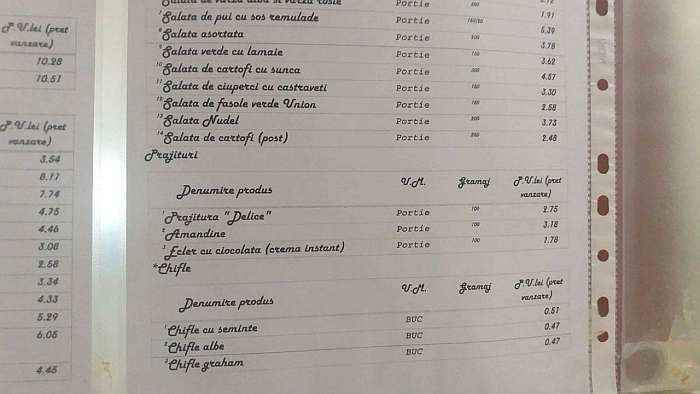 P.V.lei (pret
vanzare)
10.28
10.51
P.V.lei (pret
vanzare)
3.54
8.17
7.74
4.75
4.46
3.08
2.58
3.34
4.33
5.29
6.05
4.45
Salata de varza alba si varza rosie Portie
Salata de pui cu sos remulade Portie 1.91
Salata asortata Portie 5.39
9 Salata verde cu lamaie Portie 3.78
10 Salata de cartofi cu sunca Portie 3.62
11 Salata de ciuperci cu castraveti Portie 4.57
12 Salata de fasole verde Union Portie 3.30
13 Salata Nudel Portie 2.58
14 Salata de cartofi (post) Portie 3.73
2.48
Prajituri
Denumire produs U.M. Gramaj P.V.lei (pret
vanzare)
1 Prajitura "Delice" Portie 100 2.75
2 Amandine Portie 100 3.18
3 Ecler cu ciocolata (crema instant) Portie 100 1.78
*Chifle
Denumire produs U.M. Gramaj P.V.lei (pret
vanzare)
1 Chifle cu seminte BUC 0.51
2 Chifle albe BUC 0.47
3 Chifle graham BUC 0.47